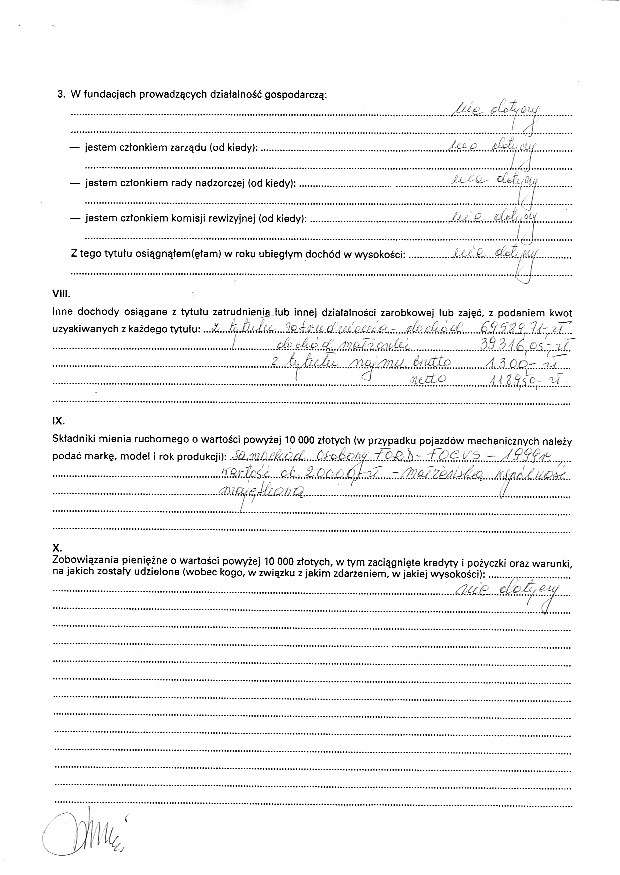 3. W fundacjach prowadzących działalność gospodarczą:
nie dotyczy
— jestem członkiem zarządu (od kiedy): nie dotyczy
— jestem członkiem rady nadzorczej (od kiedy): nie dotyczy
— jestem członkiem komisji rewizyjnej (od kiedy): nie dotyczy
Z tego tytułu osiągnąłem(ęłam) w roku ubiegłym dochód w wysokości: nie dotyczy
VIII.
Inne dochody osiągane z tytułu zatrudnienia lub innej działalności zarobkowej lub zajęć, z podaniem kwot
uzyskiwanych z każdego tytułu: z tytułu zatrudnienia - dochód 69529,71-zł
dochód małżonki 39316,05-zł
z tytułu najmu brutto 1300-zł
netto 1189,50-zł
IX.
Składniki mienia ruchomego o wartości powyżej 10 000 złotych (w przypadku pojazdów mechanicznych należy
podać markę, model i rok produkcji): samochód osobowy FORD - FOCUS - 1999r
wartość ok 20000zł - małżeńska wspólność
majątkowa
X.
Zobowiązania pieniężne o wartości powyżej 10 000 złotych, w tym zaciągnięte kredyty i pożyczki oraz warunki,
na jakich zostały udzielone (wobec kogo, w związku z jakim zdarzeniem, w jakiej wysokości):
nie dotyczy